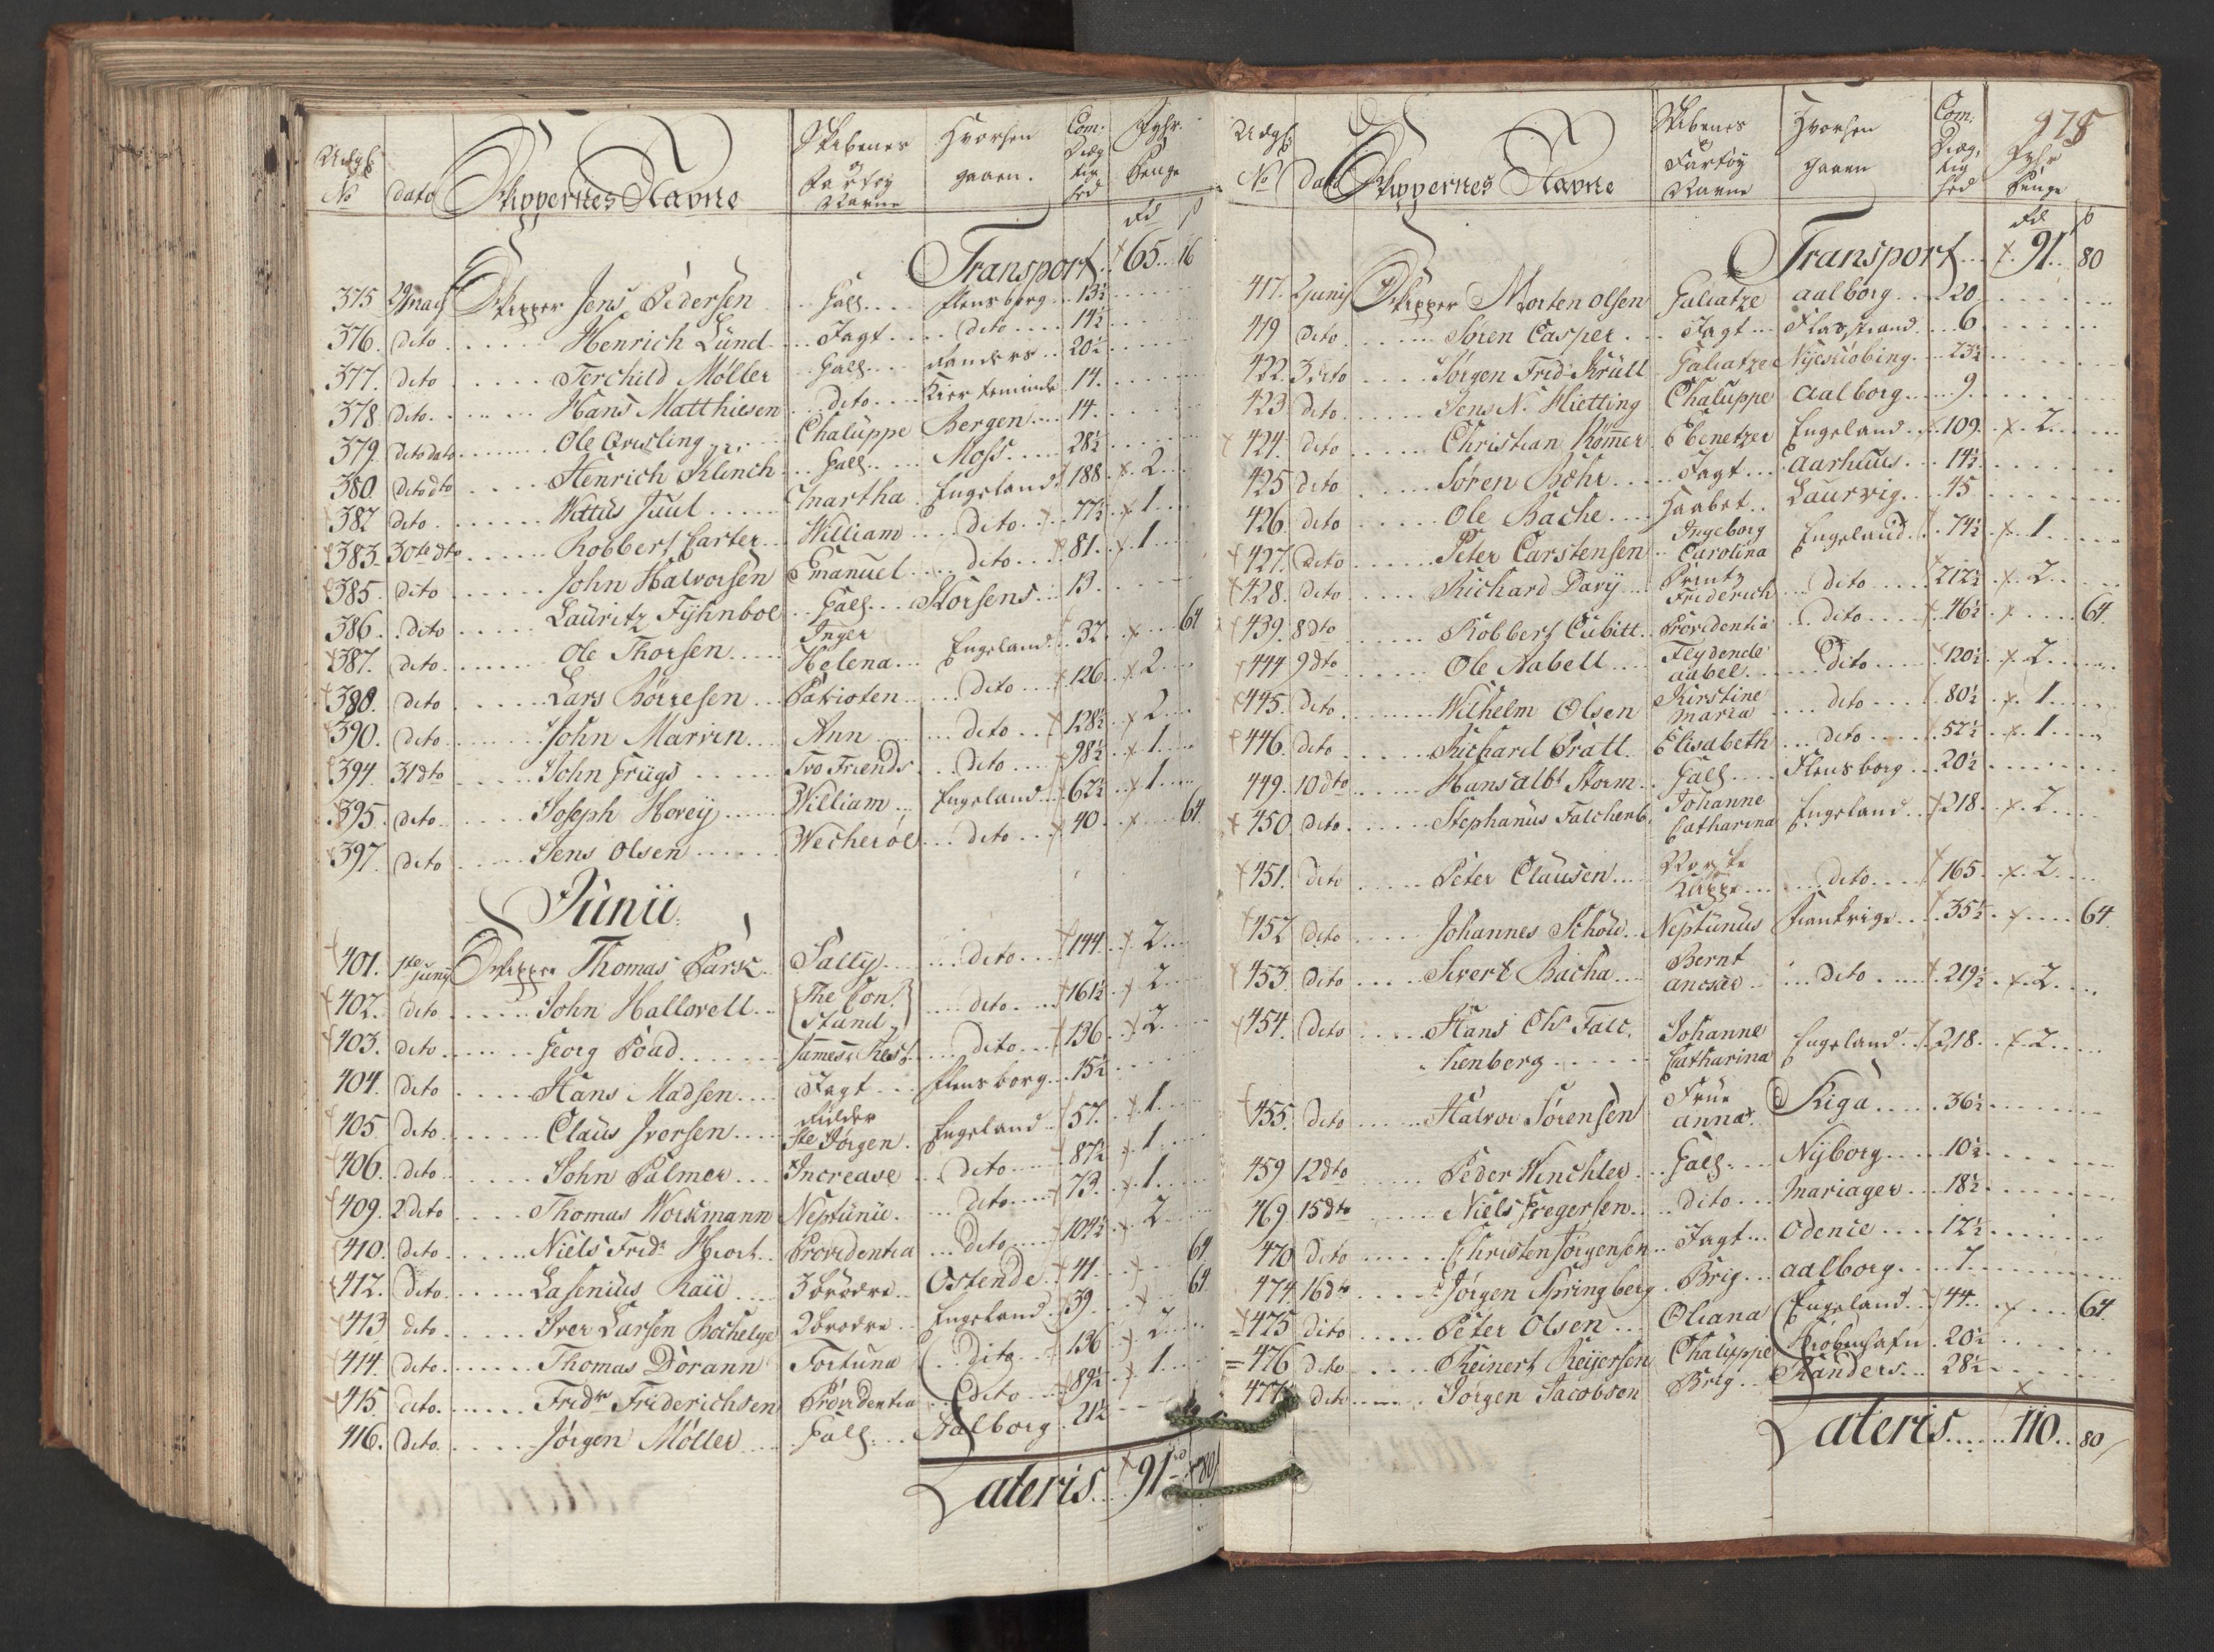 Udgb No
dato
Skippernes Navne
Skibenes og Fartøy Navne
Hvorhen gaaen.
Com: Dræg tig hed
Fyhr Penge
rd ß
Transport.. 65.. 16
375 29 Maij Skipper Jens Pedersen .. Gall .... Flensborg .. 13½
376. dito ...... Henrich Lund ... Jagt .... dito .... 14½
377. dito ..... Terchild Møller .. Gall .... Randers .. 20½
378 dito. ...... Hans Matthiesen .. dito .... Kierteminde 14.
379. dito dato ....... Ole Qvisling ...... Chaluppe Bergen .... 14.
380 dito dto .... Henrich Klinch .. Gall ..... Moss ..... 28½
382 dito ....... Vittus Juul ..... Martha . Engeland 188 .. 2
383. 30te dto ...... Robbert Carter .. William .... dito .. 77½ .. 1
385. dito ...... John Halvorsen Emanuel .... dito .. 81. 1
386. dito ..... Lauritz Fyhnboe .. Gall ... Horsens ... 13.
387. dito ...... Ole Thorsen ..... Inger Helena ... Engeland .. 32 .... 64
389. dito ..... Lars Børresen .. Patrioten .... dito .... 126 .. 2
390. dito ...... John Marvin .... Ann ...... dito .. 128½ .. 2
394. 31 dto ..... John Grügs ...... Tvo Friends .. dito .... 98½ .. 1
395. dito ..... Joseph Hovey ..... William ... Engeland .. 62½ .. 1
397. dito .... Jens Olsen ...... Wecherøe ... dito ... 40 ..... 64
Junii.
401. 1te Junij Skipper Thomas Park . Sally ..... dito ... 144 .. 2
402. dito ...... John Hallovell ... The Con stand .... dito .... 161½ .. 2
403. dito ...... Georg Poad ....... James & Rest .... dito ... 136 .. 2
404. dito ..... Hans Madsen .... Jagt ... Flensborg ... 15½
405 dito ...... Claus Iversen .... Ridder Ste Jørgen . Engeland .. 57. .. 1
406. dito ..... John Palmer ... Increase .. dito .... 87½ .. 1
409. 2 dito .... Thomas Workmann Neptunu. ... dito .... 73. .. 1
410. dito ..... Niels Frid: Hiort .. Providentia ... dito .... 104½ .. 2
412. dito ..... Lasenius Raii ..... 3 brødre .. Ostende . 41 ..... 64
413 dito ..... Iver Larsen Bochelye 2 brødre .. Engeland .. 39 ... 64
414. dito ...... Thomas Dorann Fortuna .. dito .. 136 .. 2
415. dito ...... Fridr Friderichsen Providentia .. dito ... 89½ .. 1
416. dito ..... Jørgen Møller .... Gall .... Aalborg . 21½
Lateris .. 91 rd 80 ß
978
Udgb No
Dato
Skippernes Navne
Skibenes Fartøy Navne
Hvorhen gaaen
Com: Dræg, tig hed
Fyhr Penge
rd ß
Transport ... 91.. 80
417. 2 Junij Skipper Morten Olsen Galiatze Aalborg .. 20
419 dito ..... Søren Casper .. Jagt ... Fladstrand .. 6
422. 3 dito .... Jørgen Frid: Krüll . Galiatze Nyekiøbing .. 23½
423 dito ..... Jens N. Hietting Chaluppe Aalborg .... 9
424. dito ..... Christian Rømer Ebenetzer Engeland .. 109. .. 2
425 dito ..... Søren Bohr .... Jagt ... Aarhuus ... 14½
426 dito ..... Ole Bache .... Haabet .. Laurvig .. 45
427. dito ..... Peter Carstensen .. Ingeborg Carolina Engeland .. 74½ .. 1
428. dito ..... Richard Davij .... Printz Friderich ... dito .... 212½ .. 2
439. 8 dto ..... Robbert Cubitt .. Providentia .. dito .... 46½ ..... 64.
444 9 dto ..... Ole Aabell .... Flydende Aabel ..... dito .... 120½ .. 2
445. dito ....... Wilhelm Olsen Kirstine Maria .... dito .... 80½ .. 1
446. dito ..... Richard Pratt .. Elisabeth ... dito ..... 52½ .. 1
449. 10 dto ..... Hans Albt Storm .. Gall .... Flensborg .. 20½
450. dito ..... Stephanus Falchenb. Johanne Catharina Engeland .. 218. .. 2
451. dito ..... Peter Clausen .... Norske Kappe ... dito .... 165 .. 2
452 dito ..... Johannes Schold .. Neptunus Frankrige .. 35½ ..... 64
453 dito ..... Sivert Bacha .... Bernt Ancker ..... dito .... 219½ .. 2
454. dito ..... Hans Chr Falc. Johanne Engeland .. 218 .. 2
henberg ..... Catharina
455. dito ..... Halvor Sørensen Frue Anna. Riga .... 36½
459 12 dto ..... Peder Winchler .. Gall .... Nyborg .... 10½
469 15 dto ..... Niels Gregersen .... dito ... Mariager .. 18½
470 dito ..... Christen Jørgensen .. Jagt ... Odence .... 12½
474 16 dto ..... Jørgen Springberg . Brig ... Aalborg .... 7
475 dito ..... Peter Olsen ... Oliana Engeland .. 44. ..... 64
476 dito ..... Reinert Reijersen Chaluppe Kiøbenhafn . 20½
477 dito .... Jørgen Jacobsen Brig .. Randers .. 28½
Lateris ..... 110.. 80